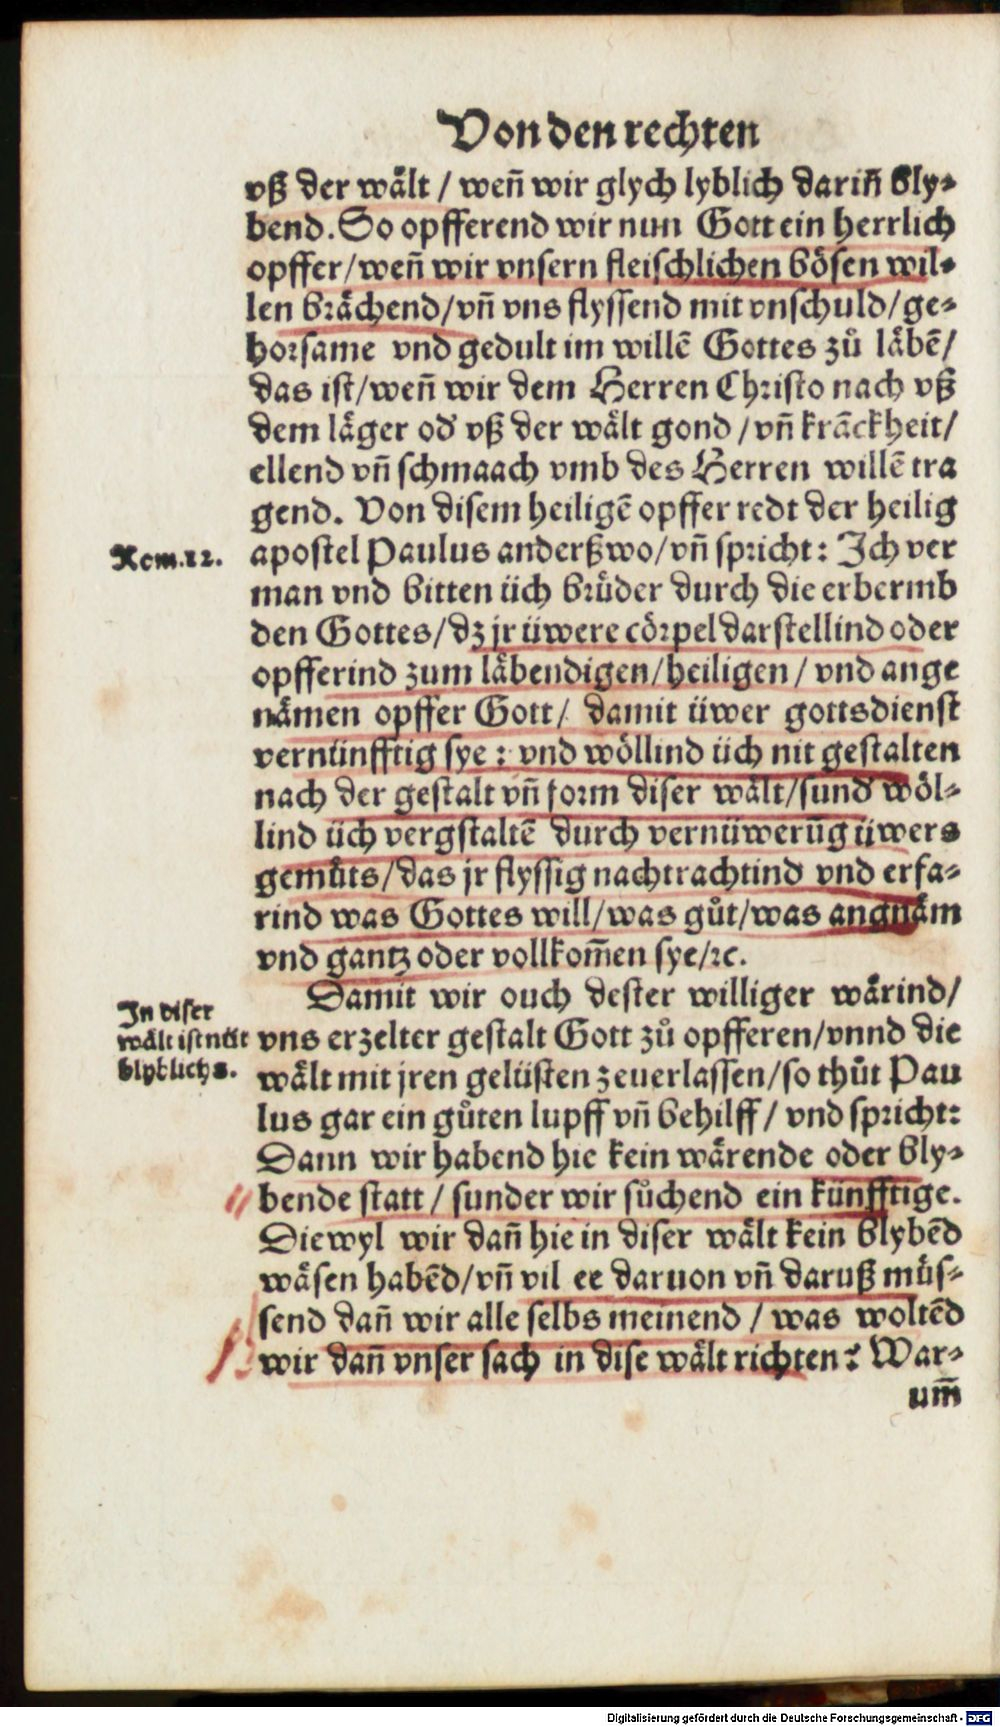 Von den rechten
vß der wålt / weñ wir glych lyblich dariñ bly⸗
bend. So opfferend wir nun Gott ein herrlich
opffer/weñ wir vnsern fleischlichen bösen wil⸗
len bråchend/vñ vns flyssend mit vnschuld/ge⸗
horsame vnd gedult im willẽ Gottes zů låbẽ/
das ist/weñ wir dem Herren Christo nach vß
dem låger od' vß der wålt gond /vñ krãckheit/
ellend vñ schmaach vmb des Herren willẽ tra
gend. Von disem heiligẽ opffer redt der heilig
Rom.12.
apostel Paulus anderßwo/vñ spricht: Ich ver
man vnd bitten üch brüder durch die erbermb
den Gottes/dz jr üwere cörpel darstellind oder
opfferind zum låbendigen/heiligen/ vnd ange
nåmen opffer Gott/ damit üwer gottsdienst
vernünfftig sye: vnd wöllind üch nit gestalten
nach der gestalt vñ form diser wålt/sund' wöl⸗
lind üch vergstaltẽ durch vernüwerũg üwers
gemüts/das jr flyssig nachtrachtind vnd erfa⸗
rind was Gottes will/was gůt/was angnåm
vnd gantz oder vollkom̃en sye/ꝛc.
Damit wir ouch dester williger wårind/
In diser
wålt ist nüt
blyblichs.
vns erzelter gestalt Gott zů opfferen/vnnd die
wålt mit jren gelüsten zeuerlassen/so thůt Pau
lus gar ein gůten lupff vñ behilff/ vnd spricht:
Dann wir habend hie kein wårende oder bly⸗
bende statt / sunder wir sůchend ein künfftige.
Diewyl wir dañ hie in diser wålt kein blybẽd
wåsen habẽd/vñ vil ee daruon vñ daruß müs⸗
send dañ wir alle selbs meinend / was woltẽd
wir dañ vnser sach in dise wålt richten? War⸗
um̃
Digitalisierung gefördert durch die Deutsche Forschungsgemeinschaft - DFG